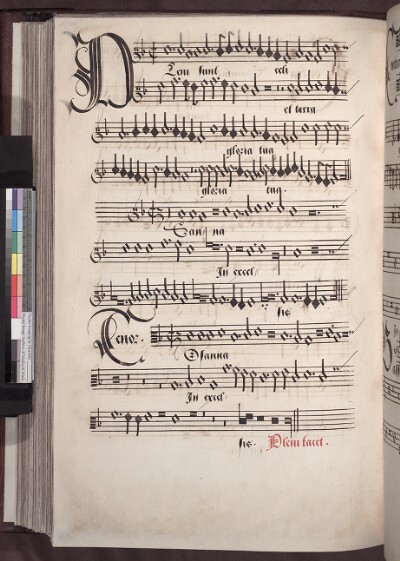 Pleni sunt celi
et terra
gloria tua
gloria tua.
Osanna
In excel
sis
Tenor.
Osanna
In excel
sis. Pleni tacet.